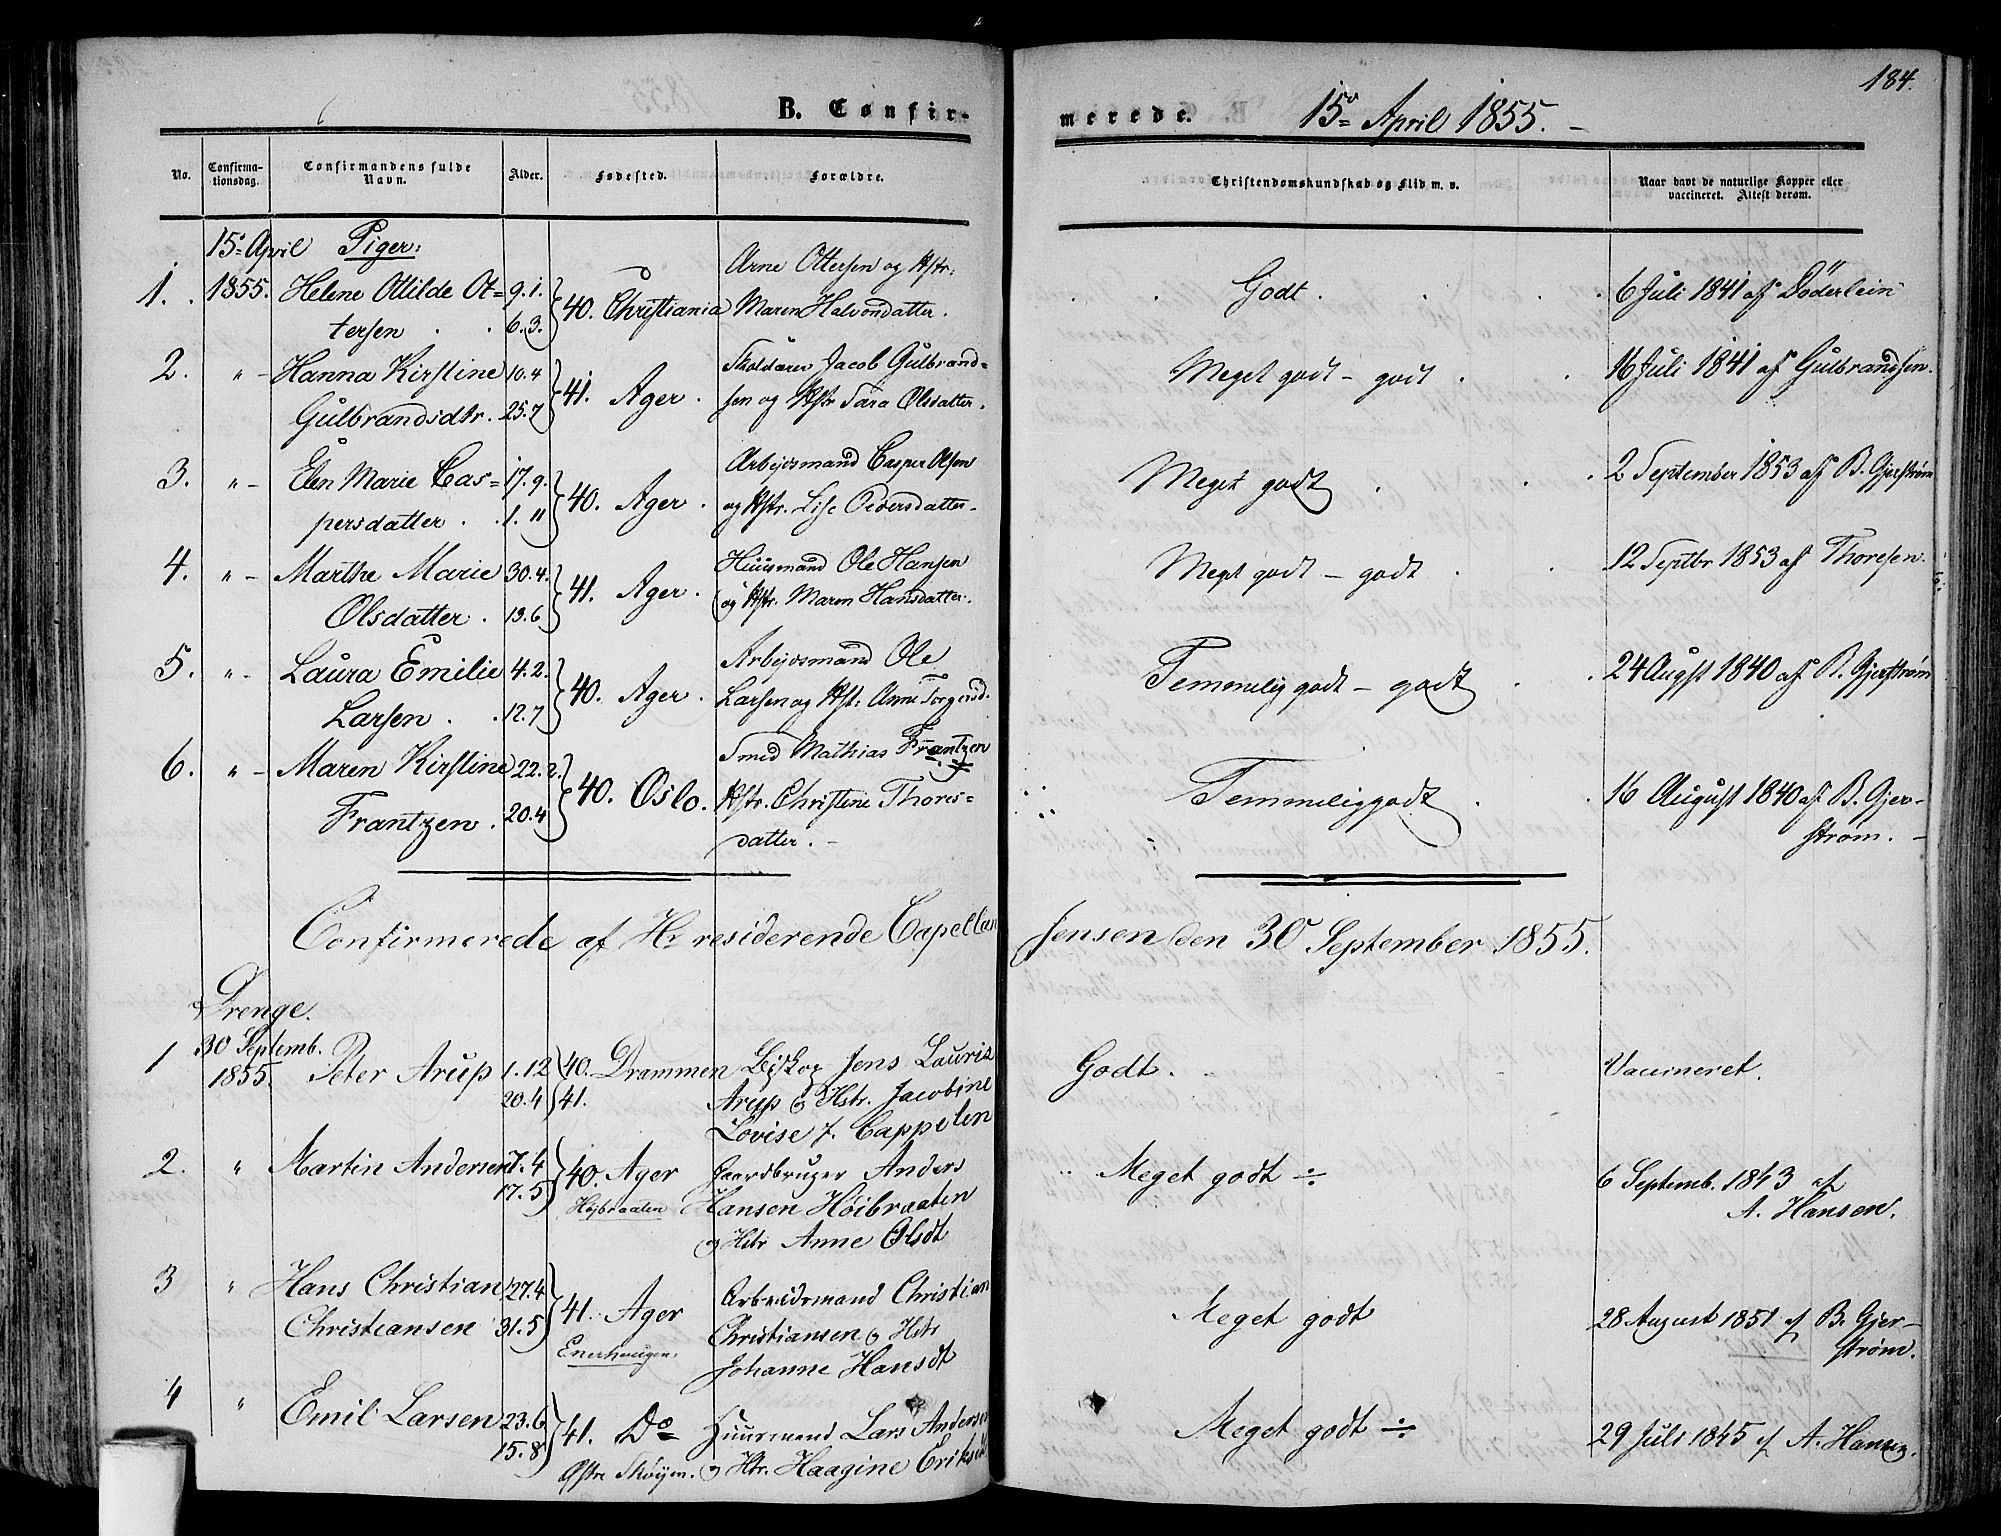 184.
B. Confir-
merede.
15de April 1855. -
No.
Confirma-
tionsdag.
Confirmandens fulde
Navn.
Alder.
Fødested.
Forældre.
Christendomskundskab og Flid m. v.
Naar havt de naturlige Kopper eller
vaccineret. Attest derom.
15de April Piger:
Arne Ottersen og Hstr:
1. 1855. Helene Ottilde Ot= 9.1. 40. Christiania Maren Halvorsdatter. Godt. 6 Juli 1841 af Döderlein
tersen 6.3.
2. " - Hanna Kirstine 10.4 41. Ager. Jacob Gulbrand= Meget godt - godt 16 Juli 1841 af Gulbrandsen.
Gulbrandsdtr. 25.7 sen og Hstr Sara Olsdatter.
3. " - Elen Marie Cas= 17.9. 40. Ager. Arbejdsmand Casper Olsen Meget godt 2 September 1853 af B. Gjerstrøm
persdatter 1.11 og Hstr. Lise Pedersdatter.
4. " - Marthe Marie 30.4. 41. Ager. Huusmand Ole Hansen Meget godt - godt 12 Septbr 1853 af Thoresen.
Olsdatter. 13.6 og Hstr. Maren Hansdatter.
5. " - Laura Emilie 4.2. 40. Ager. Arbejdsmand Ole Temmelig godt - godt 24 August 1840 af B. Gjerstrøm
Larsen 12.7 Larsen og Hst: Anne Torgersd.
6. " - Maren Kirstine 22.2. 40. Oslo. Smed Mathias Frantzen Temmeliggodt 16 August 1840 af B. Gjer-
Frantzen. 20.4 Hstr. Christine Thores= strøm. -
datter. -
Confirmerede af Hr residerende Capellan Jensen den 30 September 1855.
Drenge.
30 Septemb.
1 1855. Peter Arup 1.12 40. Drammen Biskop Jens Lauriz Godt. Vaccineret.
20.4 41. Arup og Hstr. Jacobine
Lovise f. Cappelen
2. " Martin Andersen 7.4 40. Ager Gaardbruger Anders Meget godt ÷ 6 Septemb. 1843 af
17.5 Høibraaten Hansen Høibraaten A. Hansen.
og Hstr Anne Olsdt
3 " Hans Christian 27.4 41. Ager Arbeidsmand Christian Meget godt 28 August 1851 af B. Gjer-
Christiansen 31.5 Enerhaugen. Christiansen og Hstr strøm.
Johanne Hansdt
4 " Emil Larsen 23.6 41. Do Huusmand Lars Andersen Meget godt ÷ 29 Juli 1845 af A. Hansen.
15.8 Østre Skøyen. og Hstr. Haagine Eriksdt